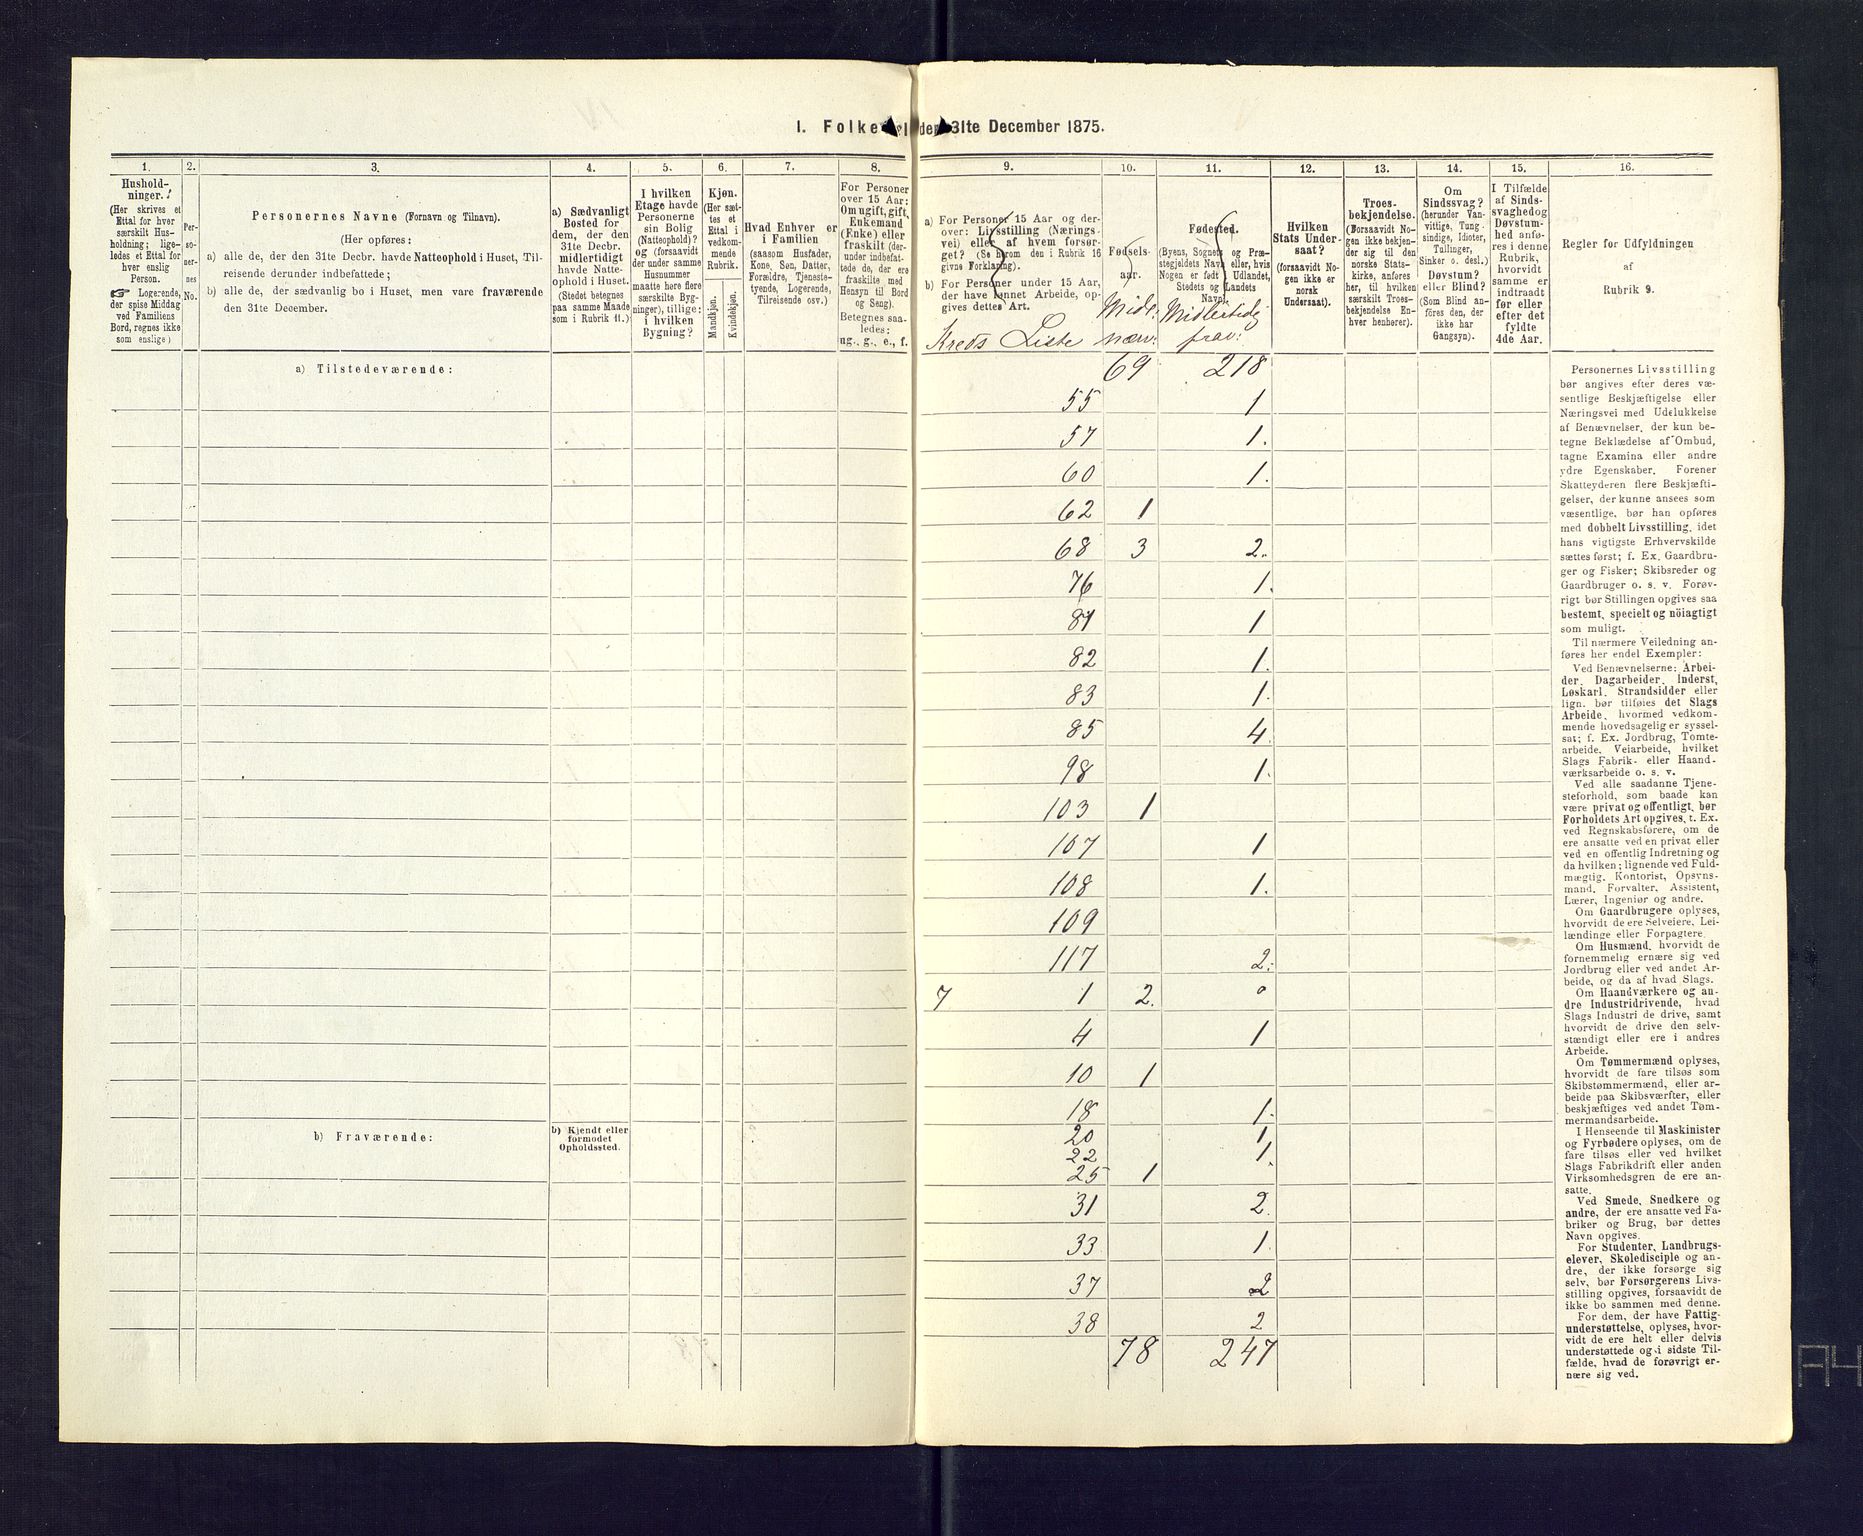 I. Folke
den 31te December 1875.
1.
2.
3.
4.
5.
6.
7.
8.
9.
10.
11.
12.
13.
14.
15.
16.
Hushold-
ninger.
(Her skrives et
Ettal for hver
særskilt Hus-
holdning; lige-
ledes et Ettal for
hver enslig
Person.
☞ Logerende,
der spise Middag
ved Familiens
Bord, regnes ikke
som enslige)
Per-
so-
ner-
nes
No.
Personernes Navne (Fornavn og Tilnavn).
(Her opføres:
a) alle de, der den 31te Decbr. havde Natteophold i Huset, Til-
reisende derunder indbefattede;
b) alle de, der sædvanlig bo i Huset, men vare fraværende
den 31te December.
a) Sædvanligt
Bosted for
dem, der den
31te Decbr.
midlertidigt
havde Natte-
ophold i Huset.
(Stedet betegnes
paa samme Maade
som i Rubrik 11.)
I hvilken
Etage havde
Personerne
sin Bolig
(Natteophold)?
og (forsaavidt
der under samme
Husnummer
maatte høre flere
særskilte Byg-
ninger), tillige:
i hvilken
Bygning?
Kjøn.
(Her sæt-
tes et
Ettal i
vedkom-
mende
Rubrik.
Mandkjøn.
Kvindekjøn.
Hvad Enhver er
i Familien
(saasom Husfader,
Kone, Søn, Datter,
Forældre, Tjeneste-
tyende, Logerende,
Tilreisende osv.)
For Personer
over 15 Aar:
Om ugift, gift,
Enkemand
(Enke) eller
fraskilt (der-
under indbefat-
tede de, der ere
fraskilte med
Hensyn til Bord
og Seng).
Betegnes saa-
ledes:
ug., g., e., f.
a) For Personer 15 Aar og der-
over: Livsstilling (Nærings-
vei) eller af hvem forsør-
get? (Se herom den i Rubrik 16
givne Forklaring).
b) For Personer under 15 Aar,
der have lønnet Arbeide, op-
gives dettes Art.
Kreds Liste
Fødsels-
aar.
Midl:
nærv:
Fødested.
(Byens, Sognets og Præ-
stegjeldets Navn eller, hvis
Nogen er født i Udlandet,
Stedets og Landets
Navn).
Midlertidig
frav:
Hvilken
Stats Under-
saat?
(forsaavidt No-
gen ikke er
norsk
Undersaat).
Troes-
bekjendelse.
(Forsaavidt No-
gen ikke bekjen-
der sig til den
norske Stats-
kirke, anføres
her, til hvilken
særskilt Troes-
bekjendelse En-
hver henhører).
Om
Sindssvag?
(herunder Van-
vittige, Tung-
sindige, Idioter,
Tullinger,
Sinker o. desl.)
Døvstum?
eller Blind?
(Som Blind an-
föres den, der
ikke har
Gangsyn).
I Tilfælde
af Sinds-
svaghed og
Døvstum-
hed anfø-
res i denne
Rubrik,
hvorvidt
samme er
indtraadt
før eller
efter det
fyldte
4de Aar.
Regler for Udfyldningen
af
Rubrik 9.
a) Tilstedeværende:
69 218
55 1
57 1.
60 1.
62 1
68 3 2.
76 1.
81 1
82 1.
83 1.
85 4.
98 1.
103 1
107 1
108 1.
109
117 2.
7 1 2. 0
4 1
10 1
18 1.
b) Fraværende:
b) Kjendt eller
formodet
Opholdssted.
20 1
22 1.
25 1
31 2.
33 1.
37 2
38 2
78 247
Personernes Livsstilling
bør angives efter deres væ-
sentlige Beskjæftigelse eller
Næringsvei med Udelukkelse
af Benævnelser, der kun be-
tegne Beklædelse af Ombud,
tagne Examina eller andre
ydre Egenskaber. Forener
Skatteyderen flere Beskjæfti-
gelser, der kunne ansees som
væsentlige, bør han opføres
med dobbelt Livsstilling, idet
hans vigtigste Erhvervskilde
sættes først; f. Ex. Gaardbru-
ger og Fisker; Skibsreder og
Gaardbruger o. s. v. Forøv-
rigt bør Stillingen opgives saa
bestemt, specielt og nöiagtigt
som muligt.
Til nærmere Veiledning an-
føres her endel Exempler:
Ved Benævnelserne: Arbei-
der, Dagarbeider, Inderst,
Løskarl, Strandsidder eller
lign. bør tilføies det Slags
Arbeide, hvormed vedkom-
mende hovedsagelig er syssel-
sat; f. Ex. Jordbrug, Tomte-
arbeide, Veiarbeide, hvilket
Slags Fabrik- eller Haand-
værksarbeide o. s. v.
Ved alle saadanne Tjene-
steforhold, som baade kan
være privat og offentligt, bør
Forholdets Art opgives, t. Ex.
ved Regnskabsførere, om de
ere ansatte ved en privat eller
ved en offentlig Indretning og
da hvilken; lignende ved Fuld-
mægtig, Kontorist, Opsyns-
mand, Forvalter, Assistent,
Lærer, Ingeniør og andre.
Om Gaardbrugere oplyses,
hvorvidt de ere Selveiere, Lei-
lændinge eller Forpagtere.
Om Husmænd, hvorvidt de
fornemmelig ernære sig ved
Jordbrug eller ved andet Ar-
beide, og da af hvad Slags.
Om Haandværkere og an-
dre Industridrivende, hvad
Slags Industri de drive, samt
hvorvidt de drive den selv-
stændigt eller ere i andres
Arbeide.
Om Tømmermænd oplyses,
hvorvidt de fare tilsøs som
Skibstømmermænd, eller ar-
beide paa Skibsværfter, eller
beskjæftiges ved andet Tøm-
mermandsarbeide.
I Henseende til Maskinister
og Fyrbødere oplyses, om de
fare tilsøs eller ved hvilket
Slags Fabrikdrift eller anden
Virksomhedsgren de ere an-
satte.
Ved Smede, Snedkere og
andre, der ere ansatte ved Fa-
briker og Brug, bør dettes
Navn opgives.
For Studenter, Landbrugs-
elever, Skoledisciple og an-
dre, der ikke forsørge sig
selv, bør Forsørgerens Livs-
stilling opgives, forsaavidt de
ikke bo sammen med denne.
For dem, der have Fattig-
understøttelse, oplyses, hvor-
vidt de ere helt eller delvis
understøttede og i sidste Til-
fælde, hvad de forøvrigt er-
nære sig ved.